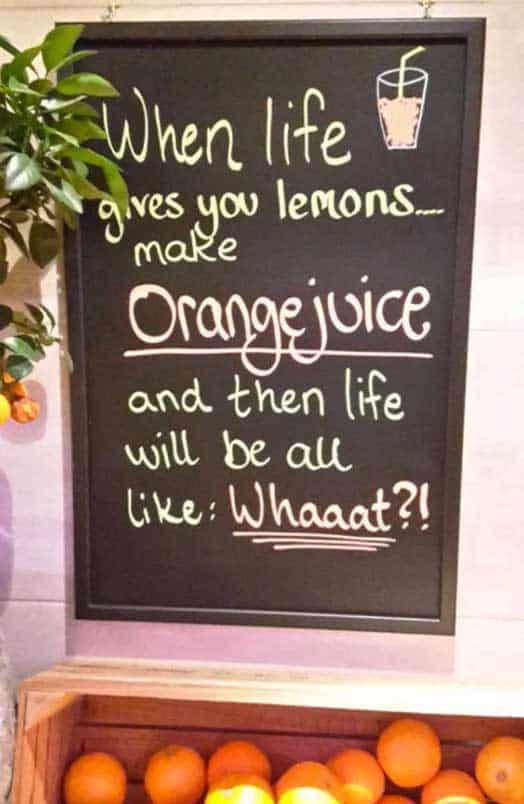 When life
gives you lemons....
make
Orangejuice
and then life
will be all
like: Whaaat?!